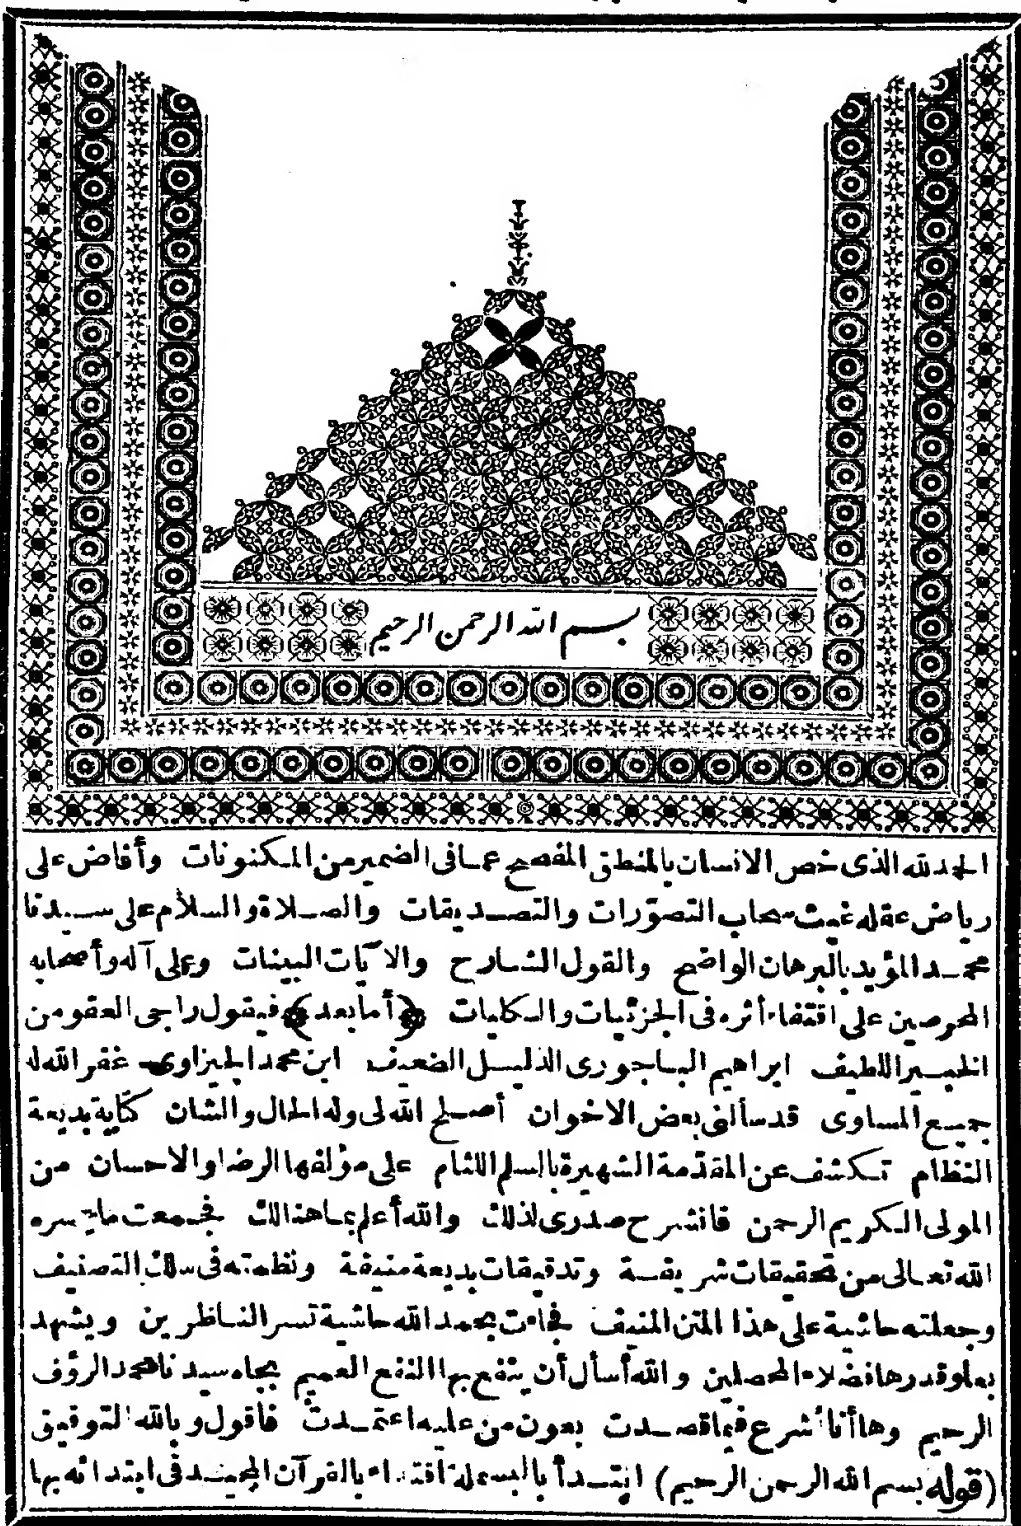 بسم الله الرحمن الرحيم
الحمد لله الذى خص الانسان بالمنطق المفصح عما فى الضمير من المكنونات وأفاض على
رياض عقله غيث سحاب التصوّرات والتصديقات والصلاة والسلام على سيدنا
محمد المؤيد بالبرهان الواضح والقول الشارح والآيات البينات وعلى آله وأصحابه
المحرصين على اقتفاء أثره فى الجزئيات والكليات ﴿أما بعد﴾ فيقول راجى العفو من
الخبير اللطيف ابراهيم الباجورى الذليل الضعيف ابن محمد الجيزاوى غفر الله له
جميع المساوى قد سألنى بعض الاخوان أصلح الله لى وله الحال والشان كتابة بديعة
النظام تكشف عن المقدّمة الشهيرة بالسلم اللثام على مؤلفها الرضا والاحسان من
المولى الكريم الرحمن فانشرح صدرى لذلك والله أعلم بما هنالك فجمعت ما يسره
الله تعالى من تحقيقات شريفة وتدقيقات بديعة منيفة ونظمته فى سلك التصنيف
وجعلته حاشية على هذا المتن المنيف فجاءت بحمد الله حاشية تسر الناظرين ويشهد
بعلو قدرها فضلاء المحصلين والله أسأل أن ينفع بها النفع العميم بجاه سيدنا محمد الرؤف
الرحيم وها أنا أشرع فيما قصدت بعون من عليه اعتمدت فأقول وبالله التوفيق
(قوله بسم الله الرحمن الرحيم) ابتدأ بالبسملة اقتداء بالقرآن المجيد فى ابتدائه بها